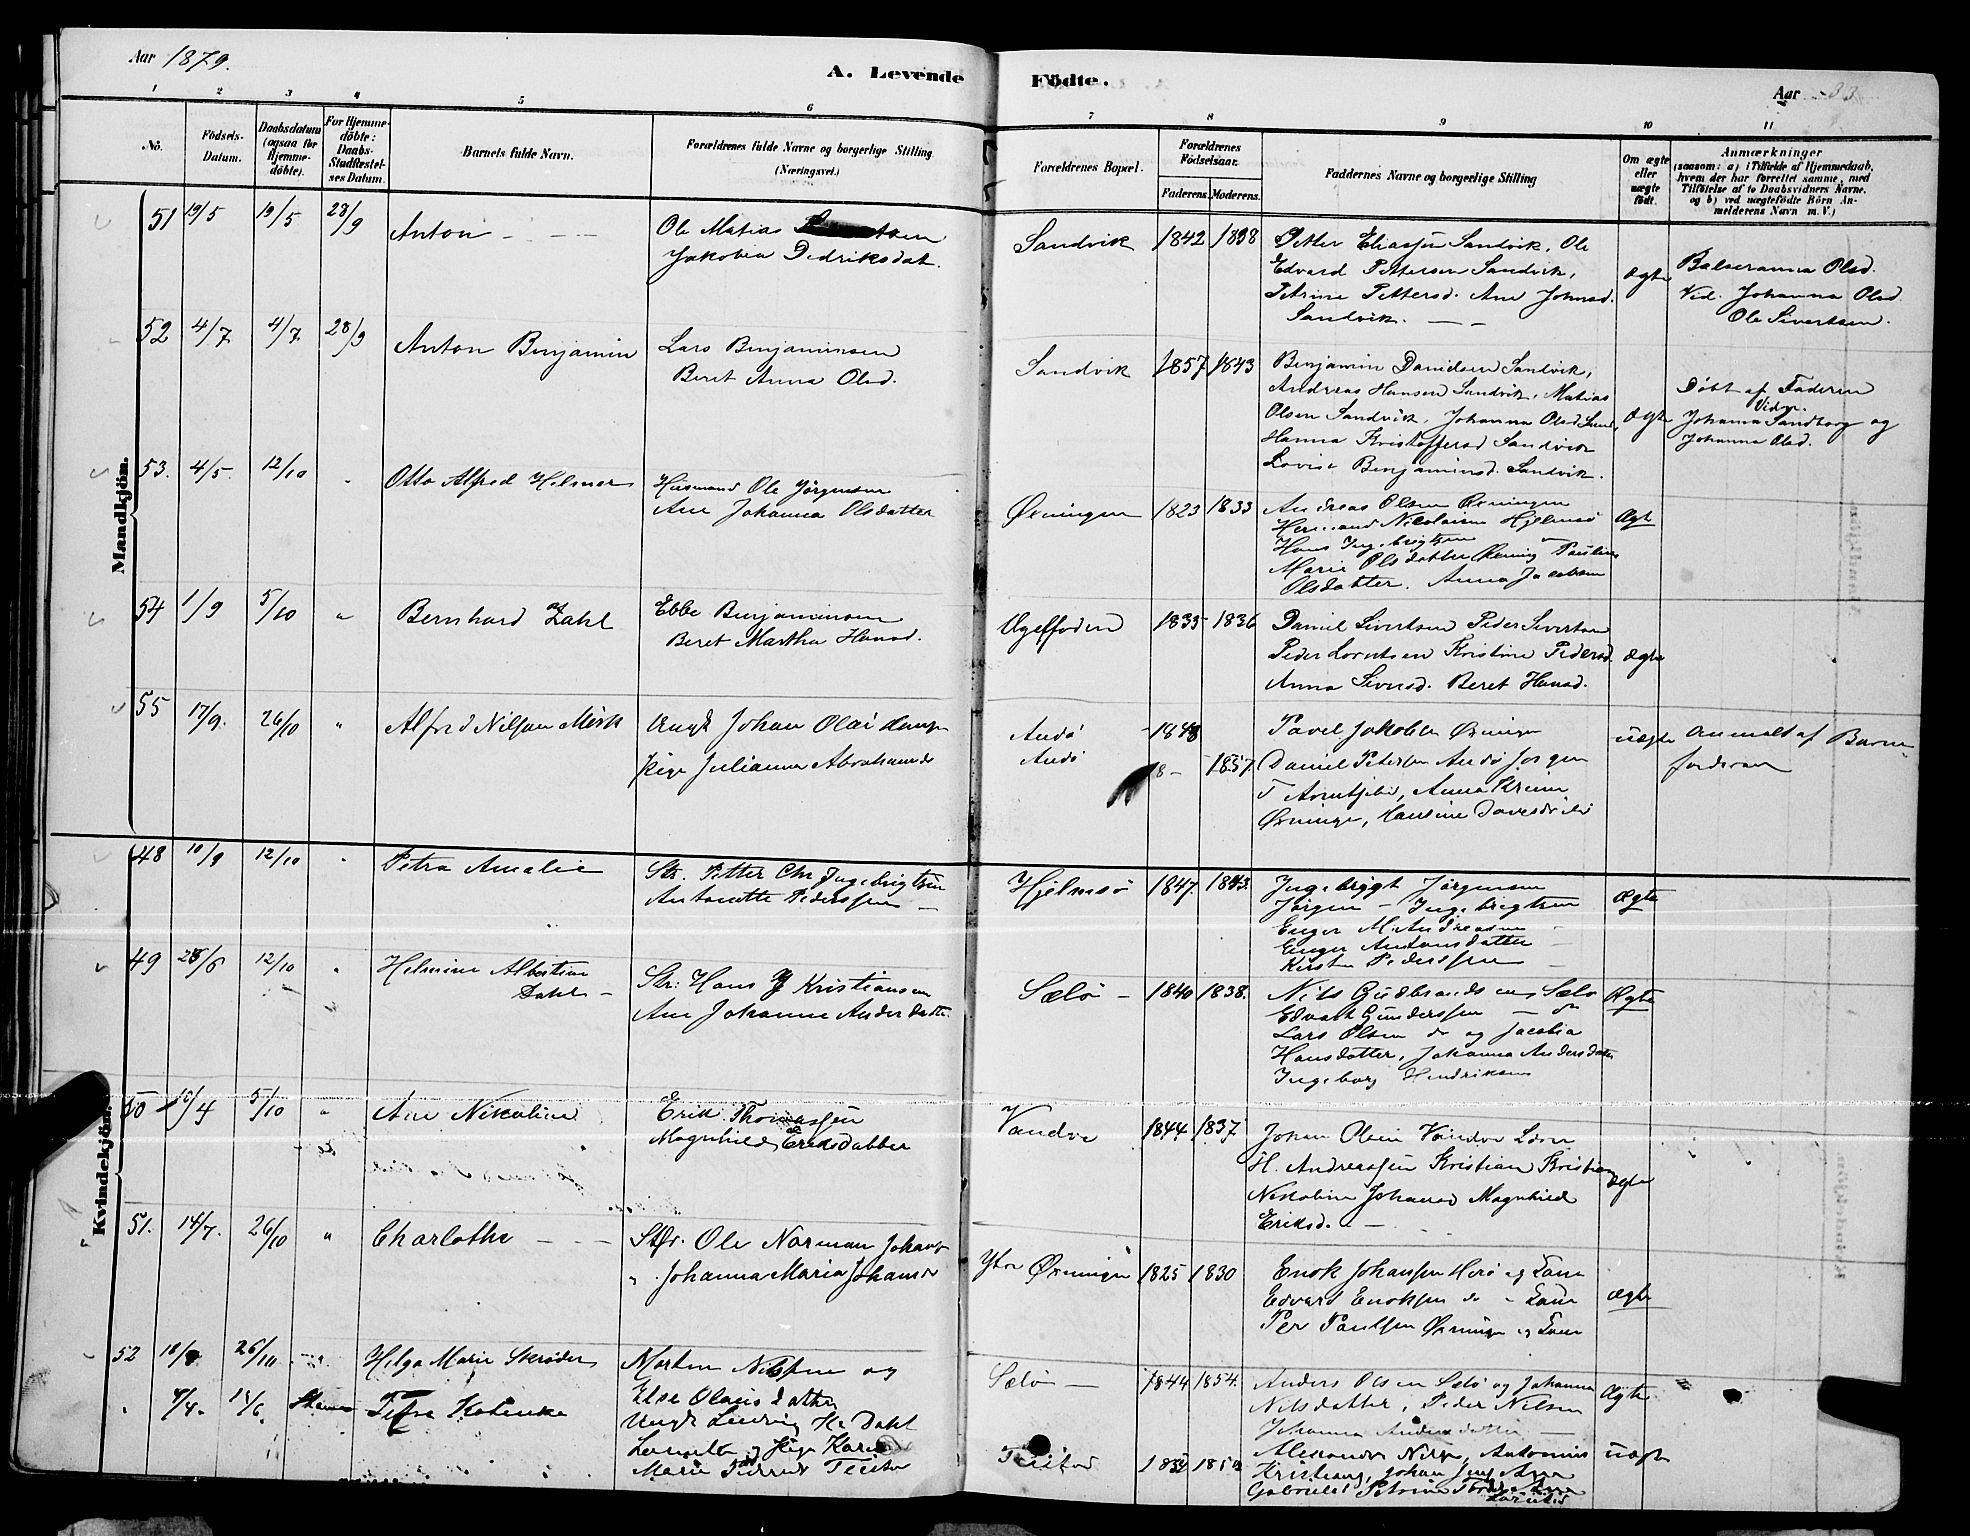 Aar 1879.
A. Levende Födte.
Aar 33
1 2 3 4 5 6 7 8 9 10 11
No.
Födsels-Datum.
Daabsdatum (ogsaa for Hjemme-döbte).
For Hjemme-döbte: Daabs-Stadfæstel-ses Datum.
Barnets fulde Navn.
Forældrenes fulde Navne og borgerlige Stilling (Næringsvei.)
Forældrenes Bopæl.
Forældrenes Födselsaar.
Faderens. Moderens.
Faddernes Navne og borgerlige Stilling
Om ægte eller uægte födt.
Anmærkninger
(saasom: a) i Tilfælde af Hjemmedaab,
hvem der har forrettet samme, med
Tilföielse af to Daabsvidners Navne.
og b) ved uægtefödte Börn An-
melderens Navn m. V.)
Mandkjön.
51 19/5 19/5 28/9 Anton
Ole Matias
Jakobia Dedriksdat.
Sandvik 1842 1838
Petter Eliassen Sandvik, Ole
Edvard Pettersen Sandvik,
Petrine Pettersd. Ane Johnsd.
Sandvik.
Ægte
Balseranna Olsd.
Vid. Johanna Olsd.
Ole Sivertsen.
52 4/7 4/7 28/9 Anton Benjamin
Lars Benjaminsen
Beret Anna Olsd.
Sandvik 1857 1843
Benjamin Danielsen Sandvik,
Andreas Hansen Sandvik, Matias
Olsen Sandvik, Johanna Olsd Sand,
Hanna Kristoffersd Sandvik
Lovise Benjaminsd. Sandvik.
Ægte
Döbt af Faderen
Vidn.
Johanna Sandborg og
Johanna Olsd.
53. 4/5. 12/10 Otto Alfred Helmer
Husmand Ole Jörgensen
Ane Johanna Olsdatter
Øxningen 1823 1833
Andreas Olsen Øxningen
Nicolaisen Hjelmsö
Hans Ingebrigtsen
Marie Olsdatter Øxning Pauline
Olsdatter. Anna Jacobsen
Ægt
54 1/9 5/10 Bernhard Zahl
Ebbe Benjaminsen
Beret Martha Hansd.
1835 1836
Daniel Sivertsen Peder Sivertsen
Peder Lorntsen Kristine Pedersd.
Anna Siversd. Beret Hansd.
Ægte
55 17/9. 26/10 Alfred Nilsen Mörk
Ungk Johan Olai
Pige Julianna Abrahamsd
Andö
Andö
1848
1857.
Pavel Jakobsen Øxninge
Daniel Petersen Andö Jörgen
Anna
Øxninge, Hansine
uægte
Anmeldt af Barne
fadren
Kvindekjön.
48 10/9 12/10 Petra Amalie
Str. Petter Chr Ingebrigtsen
Antonette Pederssen
Hjelmsö 1847. 1843.
Ingebrigt Jörgensen
Jörgen Ingebrigtsen
Enger M. Andreasen
Enger Antonsdatter
Kirsten Pederssen
Ægte
49 28/6 12/10 Helmine Albertine
Dahl
Str: Hans J Kristiansen
Ane Johanne Andersdatte
Sælö 1840 1838.
Nils Gudbrandsen Sælö
Edvart Gunderssen do
Lars Olsen do og Jacobia
Hansdatter, Johanna Andersdatte
Ingeborg Hendriksen
Ægte
50 16/4 5/10 Ane Nikoline
Erik Thomassen
Magnhild Eriksdatter
Vandve 1844 1837
Johan Olsen Vandve
H. Andreassen Kristian Kristian
Nikoline Johansd Magnhild
Eriksd.
ægte
51. 14/7. 26/10 Charlothe
Ole Norman Johans
Johanna Maria Johansd
Ytre Øxningen 1825 1830
Enok Johansen Herö og Kone
Edvard Enoksen do Kone
Per Paulsen Øxninge og Kone
ægte
52 18/9 26/10 Helga Marie Skröder
Morten Nilsen og
Else Olausdatter
Sælö 1844 1854.
Anders Olsen Sælö og Johanna
Nilsdatter, Peder Nilsen
Johanna Andersdatter
Ægte
4/4. Petra Katinka
Ungk Ludvig Dahl
og Pige Karen
Marie
1850
Alexander Nils, Antonius
Kristians, Johan
Gabriels Petrine
uægte